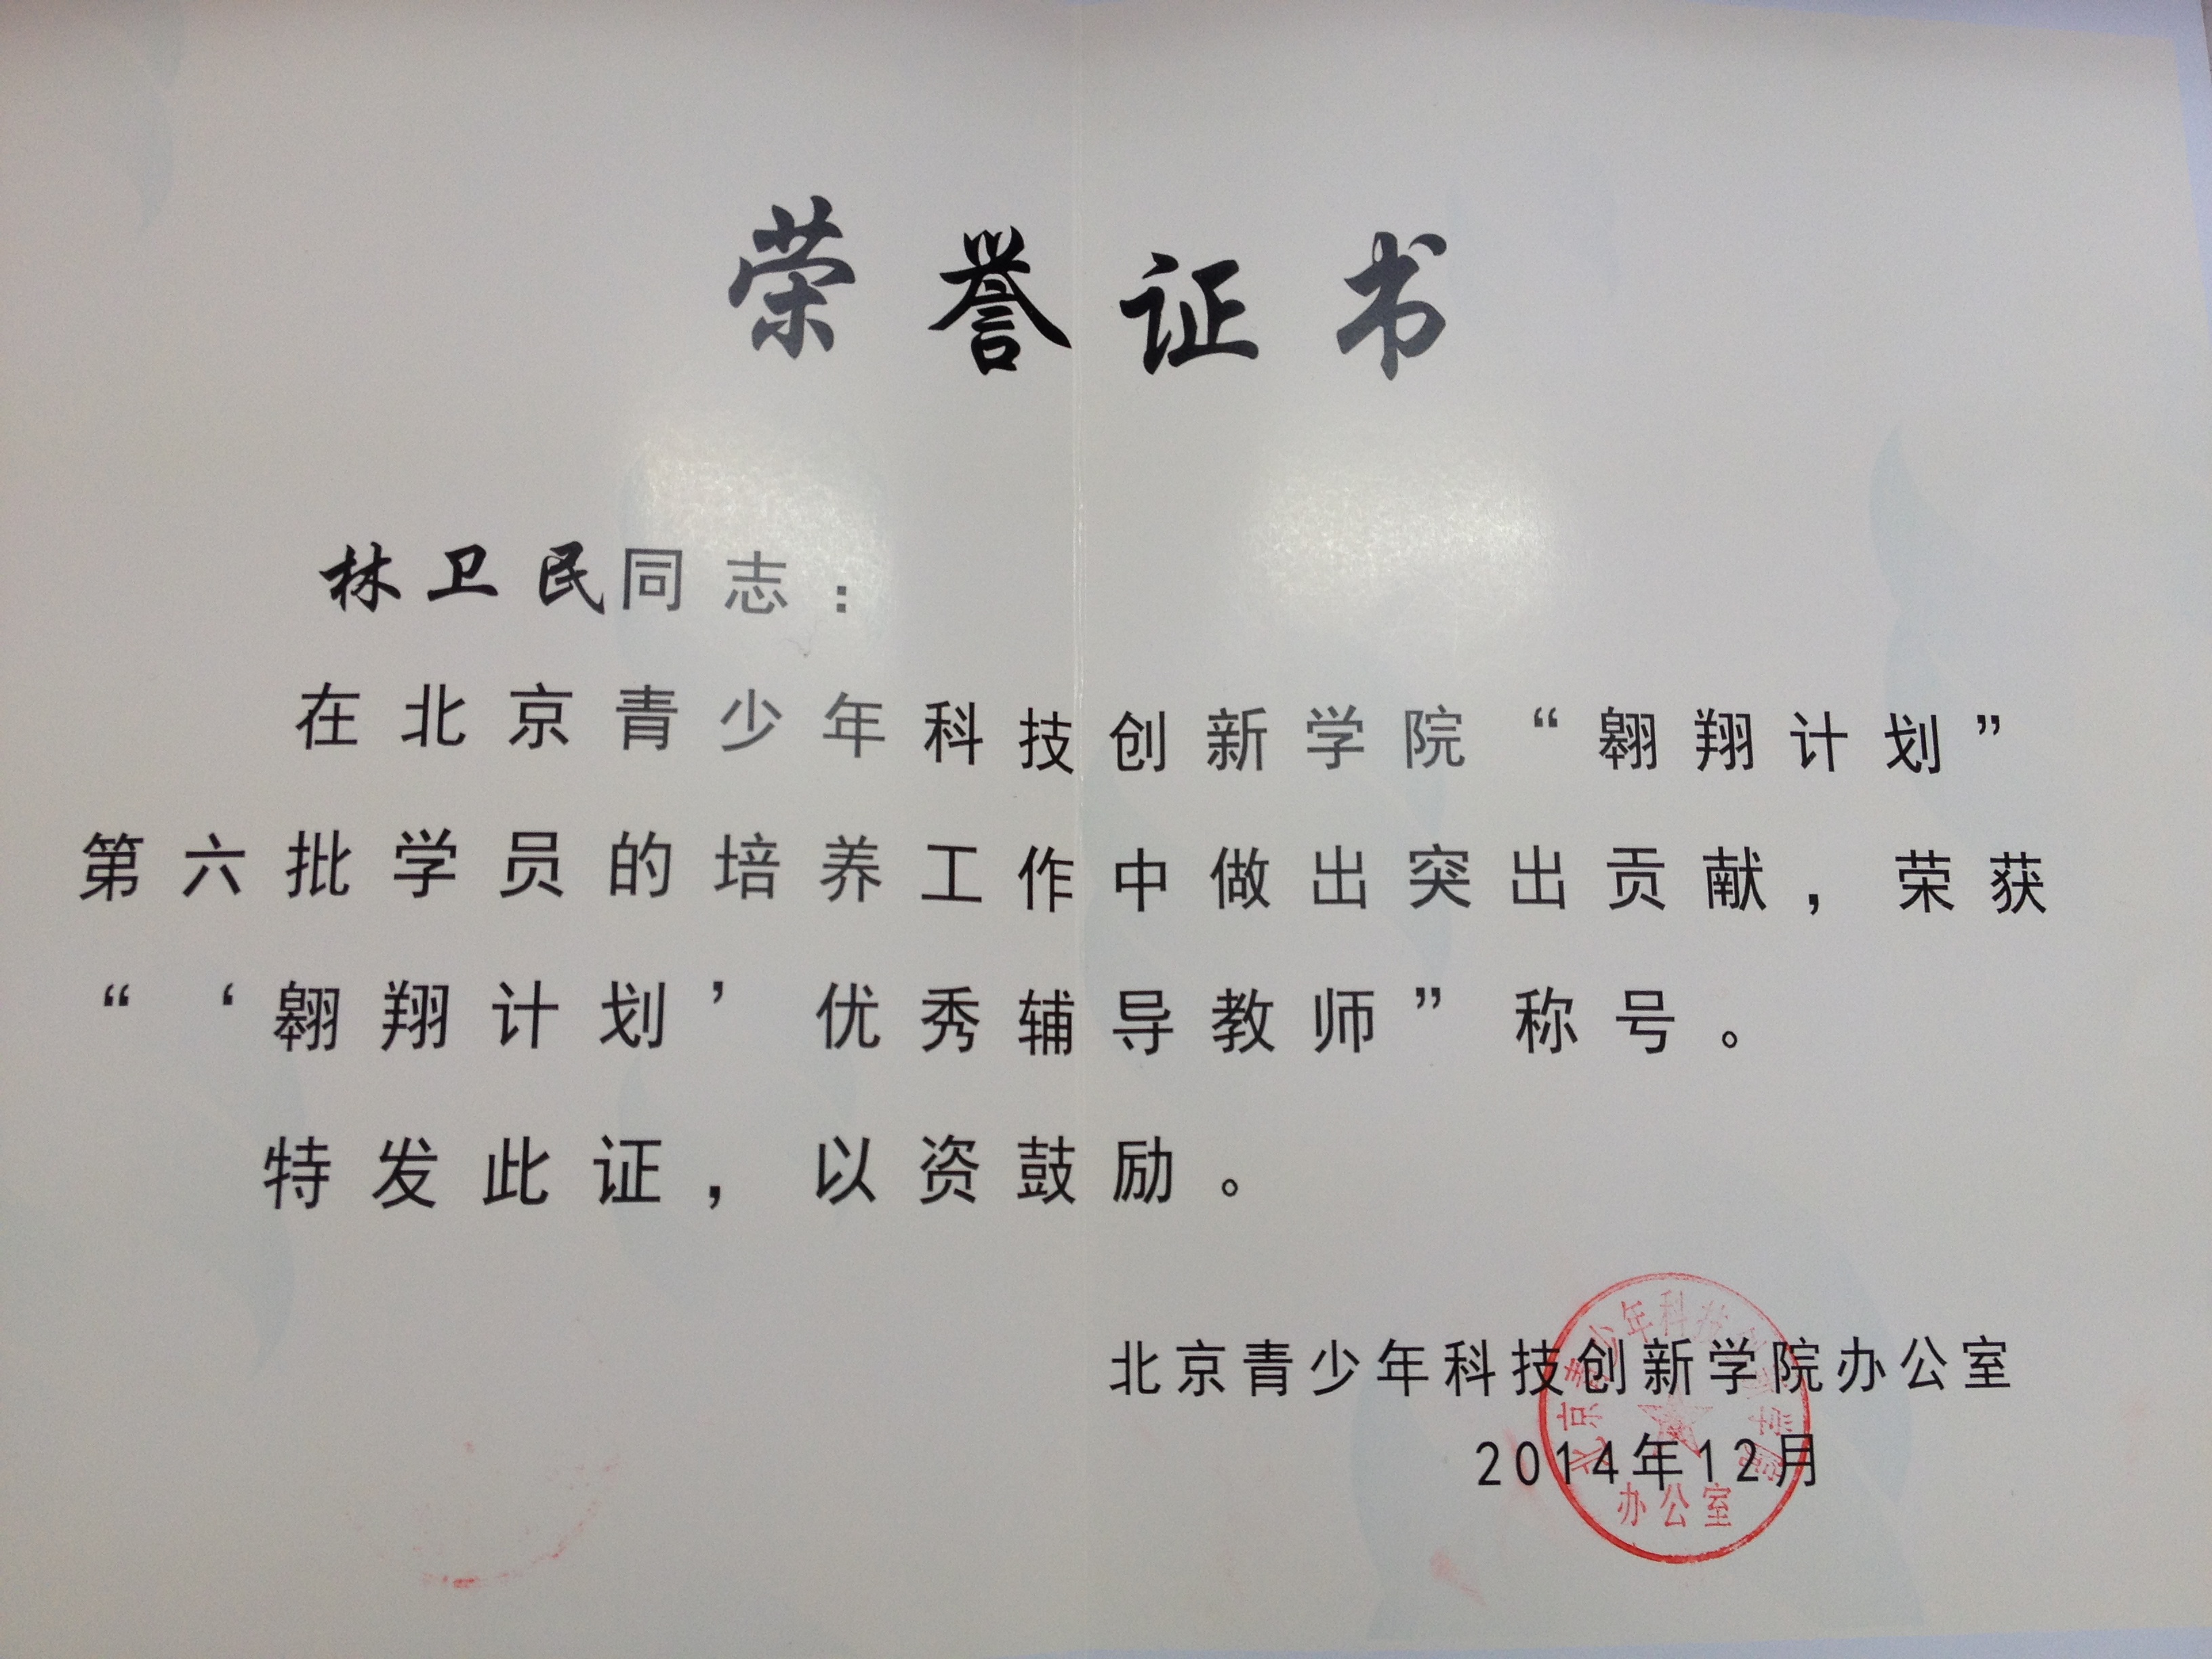 荣誉证书
林卫民同志：
在北京青少年科技创新学院“翱翔计划”
第六批学员的培养工作中做出突出贡献，荣获
“‘翱翔计划’优秀辅导教师”称号。
特发此证，以资鼓励。
北京青少年科技创新学院办公室
2014年12月
北京青少年科技创新学院
办公室